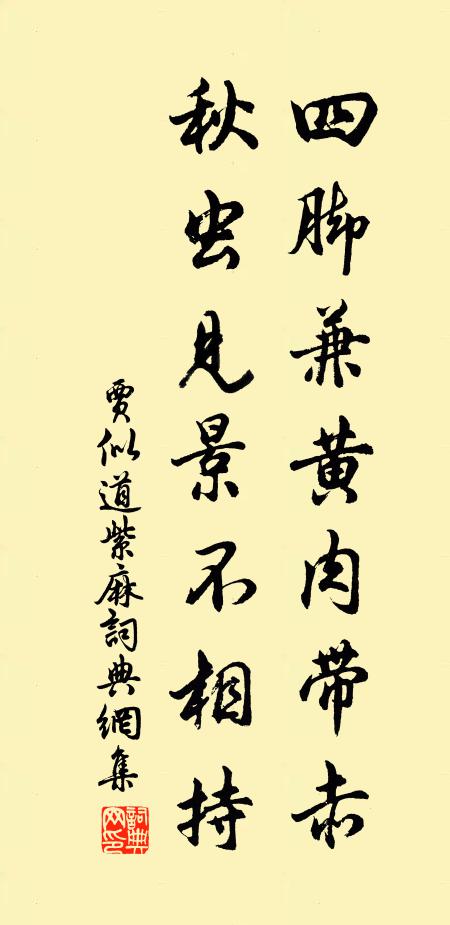 四脚兼黄肉带赤
秋虫见景不相持
賈似道紫麻詞典網集
詞典网印